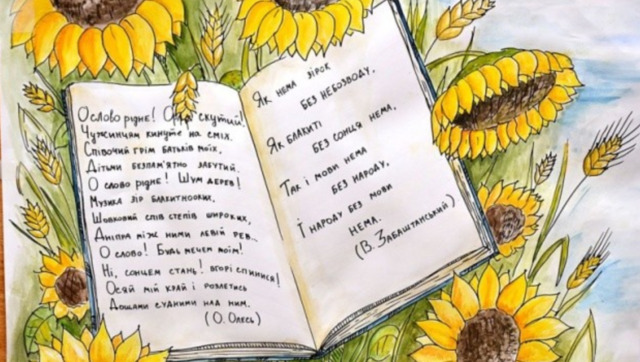 О слово рідне! скутий!
Чужинцям кинуте на сміх.
Співочий грім батьків моїх,
Дітьми безпам'ятно забутий.
О слово рідне! Шум дерев!
Музика зір блакитнооких,
Шовковий спів степів широких,
Дніпра між ними левій рев..
О слово! Будь мечем моїм!
Ні, сонцем стань! вгорі спинися!
Осяй мій край і розлетись
Дощами судними над ним.
(О. Олесь)
Як нема зірок
без небозводу,
Як блакиті
без сонця нема,
Так і мови нема
без народу,
Ї народу без мови
нема.
(В. Забаштанський)